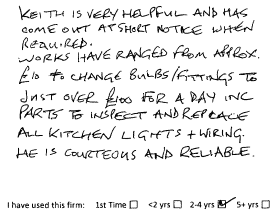 KEITH IS VERY HELPFUL AND HAS
COME OUT AT SHORT NOTICE WHEN
REQUIRED.
WORKS HAVE RANGED FROM APPROX.
£10 TO CHANGE BULBS/FITTINGS TO
JUST OVER £100 FOR A DAY INC
PARTS TO INSPECT AND REPLACE
ALL KITCHEN LIGHTS + WIRING.
HE IS COURTEOUS AND RELIABLE.
I have used this firm: 1st Time ☐ <2 yrs ☐ 2-4 yrs ☑ 5+ yrs ☐